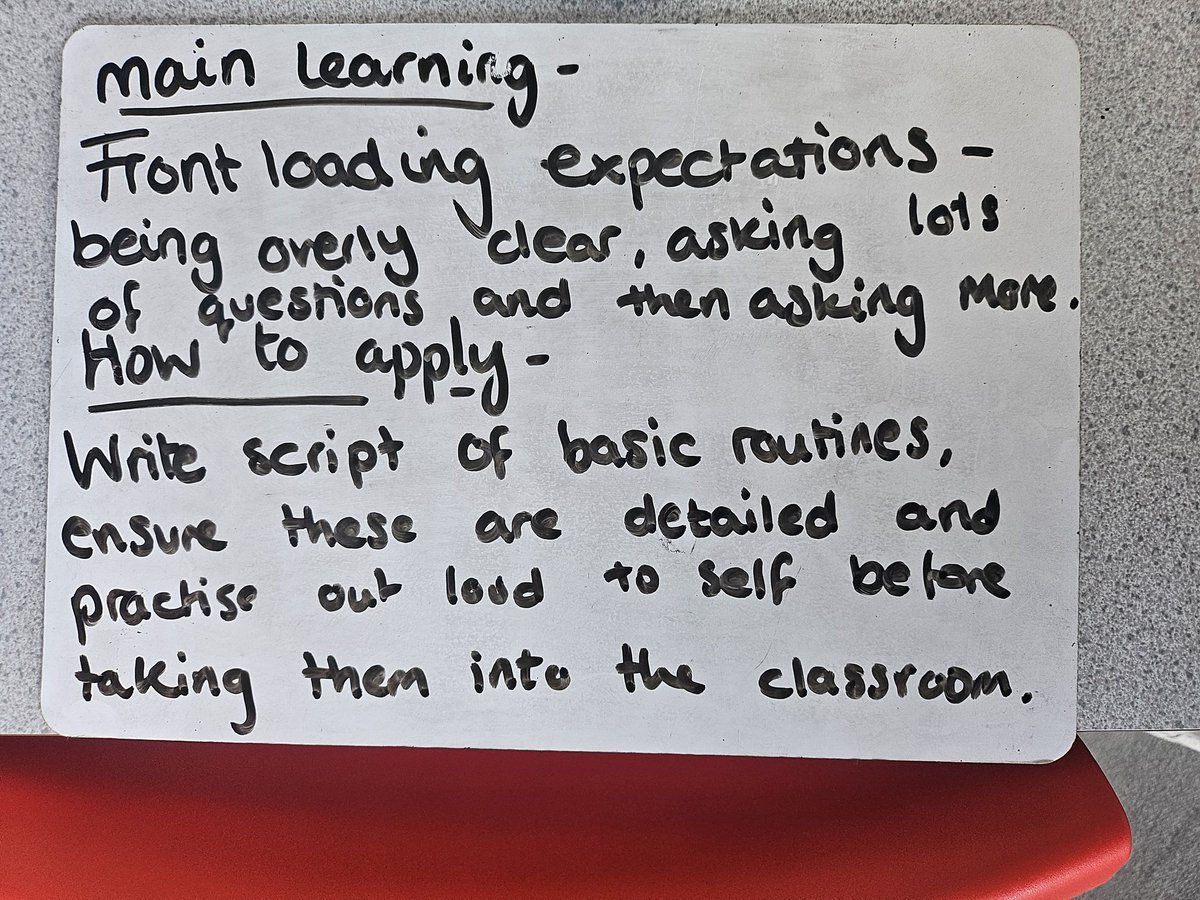 main learning -
Front loading expectations -
being overly clear, asking lots
of questions and then asking more.
How to apply -
Write script of basic routines,
ensure these are detailed and
practise out loud to self before
taking them into the classroom.